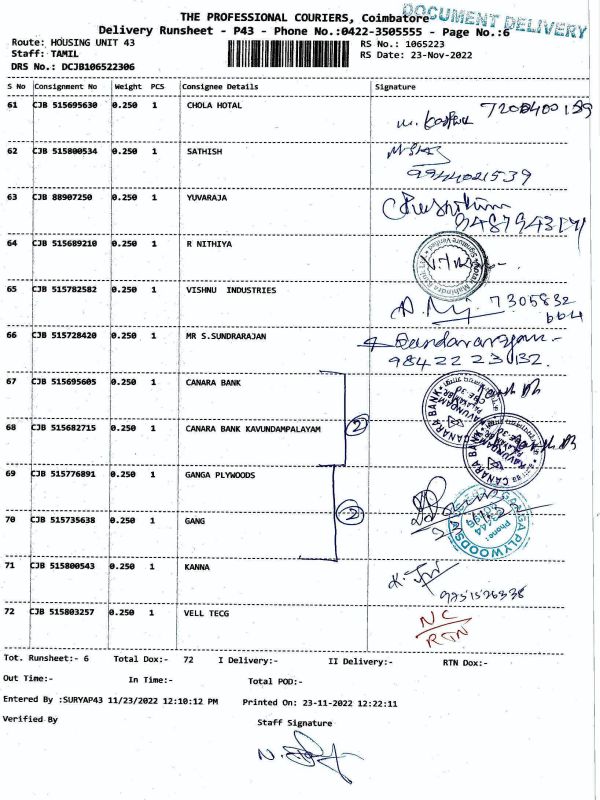 DOCUMENT DELIVERY
THE PROFESSIONAL COURIERS, Coimbatore
Delivery Runsheet - P43 - Phone No.:0422-3505555 - Page No.:6
Route: HOUSING UNIT 43 RS No.: 1065223
Staff: TAMIL RS Date: 23-Nov-2022
DRS No.: DCJB106522306
S No Consignment No Weight PCS Consignee Details Signature
61 CJB 515695630 0.250 1 CHOLA HOTAL
62 CJB 515800534 0.250 1 SATHISH
9944021539
63 CJB 88907250 0.250 1 YUVARAJA
64 CJB 515689210 0.250 1 R NITHIYA
65 CJB 515782582 0.250 1 VISHNU INDUSTRIES 7305832
664
66 CJB 515728420 0.250 1 MR S.SUNDRARAJAN
98422 23032.
67 CJB 515695605 0.250 1 CANARA BANK
CANARA BANK
68 CJB 515682715 0.250 1 CANARA BANK KAVUNDAMPALAYAM 2
CANARA BANK
69 CJB 515776891 0.250 1 GANGA PLYWOODS
2
GANGA PLYWOODS
Phone:
70 CJB 515735638 0.250 1 GANG
71 CJB 515800543 0.250 1 KANNA
72 CJB 515803257 0.250 1 VELL TECG NC
RTN
Tot. Runsheet:- 6 Total Dox:- 72 I Delivery:- II Delivery:- RTN Dox:-
Out Time:- In Time:- Total POD:-
Entered By :SURYAP43 11/23/2022 12:10:12 PM Printed On: 23-11-2022 12:22:11
Verified By Staff Signature